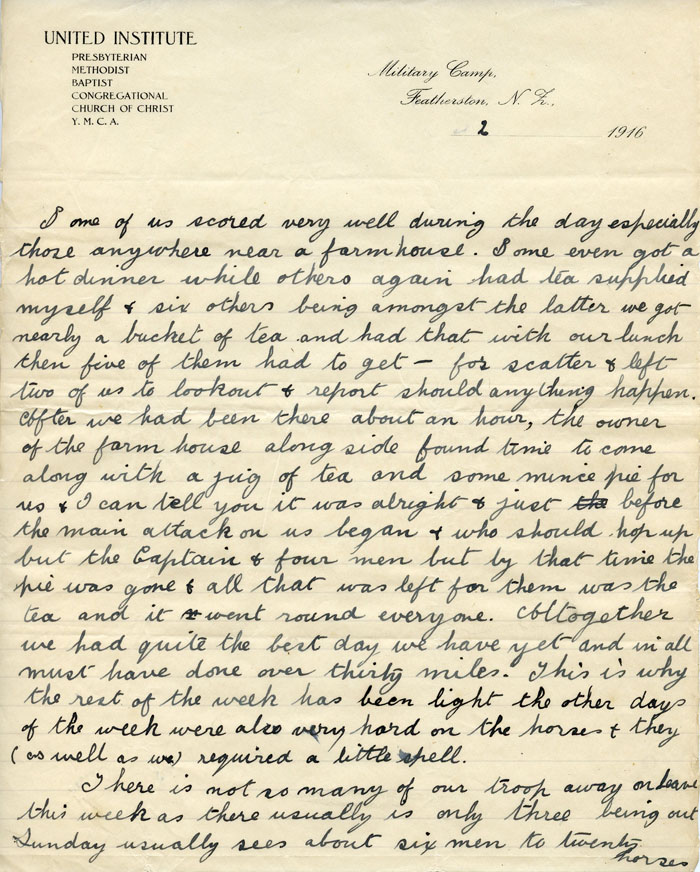 UNITED INSTITUTE
PRESBYTERIAN
METHODIST
BAPTIST
CONGREGATIONAL
CHURCH OF CHRIST
Y. M. C. A.
Military Camp,
Featherston, N. Z.,
2 1916
Some of us scored very well during the day especially
those anywhere near a farmhouse. Some even got a
hot dinner while others again had tea supplied
myself & six others being amongst the latter we got
nearly a bucket of tea and had that with our lunch
then five of them had to get — for scatter & left
two of us to lookout & report should anything happen.
After we had been there about an hour, the owner
of the farm house along side found time to come
along with a jug of tea and some mince pie for
us & I can tell you it was alright & just the before
the main attack on us began & who should hop up
but the Captain & four men but by that time the
pie was gone & all that was left for them was the
tea and it went round everyone. Alltogether
we had quite the best day we have yet and in all
must have done over thirty miles. This is why
the rest of the week has been light the other days
of the week were also very hard on the horses & they
(as well as we) required a little spell.
There is not so many of our troop away on leave
this week as there usually is only three being out
Sunday usually sees about six men to twenty
horses